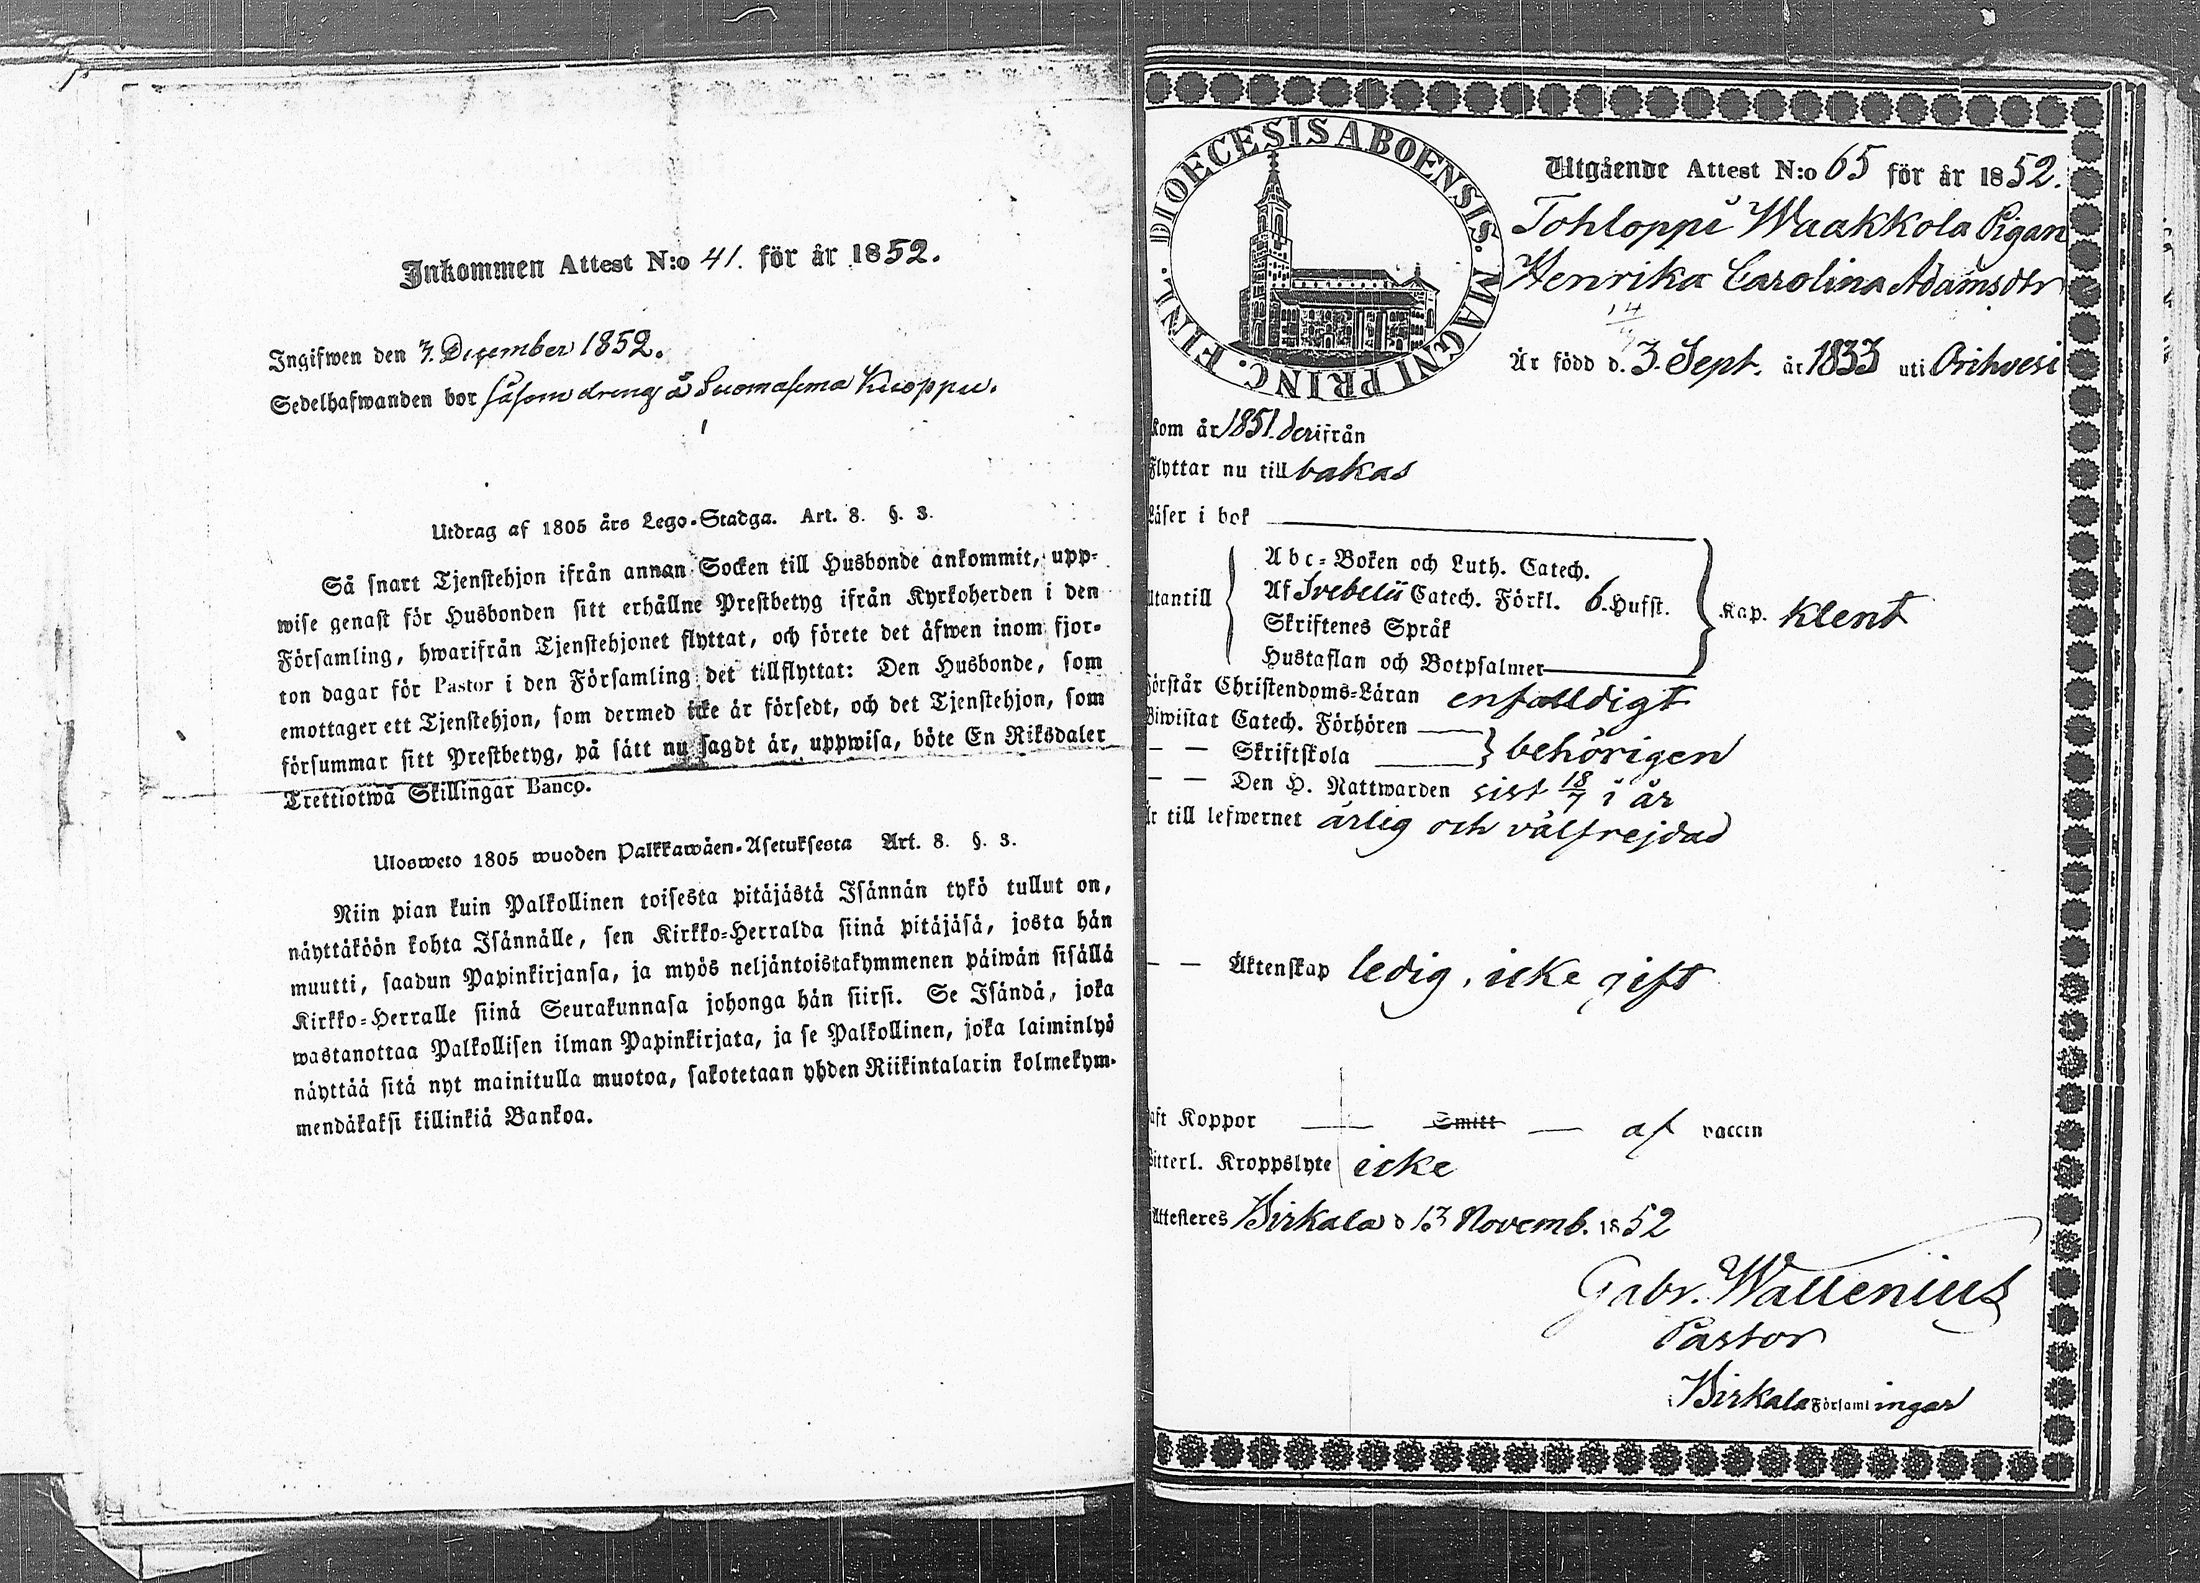 Inkommen Attest N:o 41. för år 1852.
Ingifwen den 7. December 1852.
Sedelhafwanden bor såsom dreng å Suomasema Kuoppu.
Utdrag af 1805 års Lego-Stadga. Art. 8. §. 3.
Så snart Tjenstehjon ifrån annan Socken till Husbonde ankommit, upp-
wise genast för Husbonden sitt erhållne Prestbetyg ifrån Kyrkoherden i den
Församling, hwarifrån Tjenstehjonet flyttat, och förete det äfwen inom fjor-
ton dagar för Pastor i den Församling det tillflyttat: Den Husbonde, som
emottager ett Tjenstehjon, som dermed icke är försedt, och det Tjenstehjon, som
försummar sitt Prestbetyg, på sätt nu sagdt är, uppwisa, böte En Riksdaler
Trettiotwå Skillingar Banco.
Ulosweto 1805 wuoden Palkkawäen-Asetuksesta Art. 8. §. 3.
Niin pian kuin Palkollinen toisesta pitäjästä Isännän tykö tullut on,
näyttäköön kohta Isännälle, sen Kirkko-Herralda siinä pitäjäsä, josta hän
muutti, saadun Papinkirjansa, ja myös neljäntoistakymmenen päiwän sisällä
Kirkko-Herralle siinä Seurakunnasa johonga hän siirsi. Se Isändä, joka
wastanottaa Palkollisen ilman Papinkirjata, ja se Palkollinen, joka laiminlyö
näyttää sitä nyt mainitulla muotoa, sakotetaan yhden Riikintalarin kolmekym-
mendäkaksi killinkiä Bankoa.
DIOECESIS ABOENSIS. MAGNI PRINC. FINL.
Utgående Attest N:o 65 för år 1852.
Tohloppi Waakkola Pigan
Henrika Carolina Adamsdtr
Är född d. 3. Sept. år 1833 uti Orihvesi
kom år 1851. derifrån
Flyttar nu till bakas
Läser i bok
Abc-Boken och Luth. Catech.
Utantill Af Svebelii Catech. Förkl. 6. Hufst. Kap. klent
Skriftenes Språk
Hustaflan och Botpsalmer
Förstår Christendoms-Läran enfalldigt
Biwistat Catech. Förhören
— — Skriftskola behörigen
— — Den H. Nattwarden sist 18/7 i år
Är till lefwernet ärlig och välfrejdad
— — Äktenskap ledig, icke gift
Haft Koppor — Smitt — af vaccin
Witterl. Kroppslyte icke
Attesteres Birkala d 13 Novemb. 1852
Gabr. Wallenius
Pastor
i Birkala Församlingar